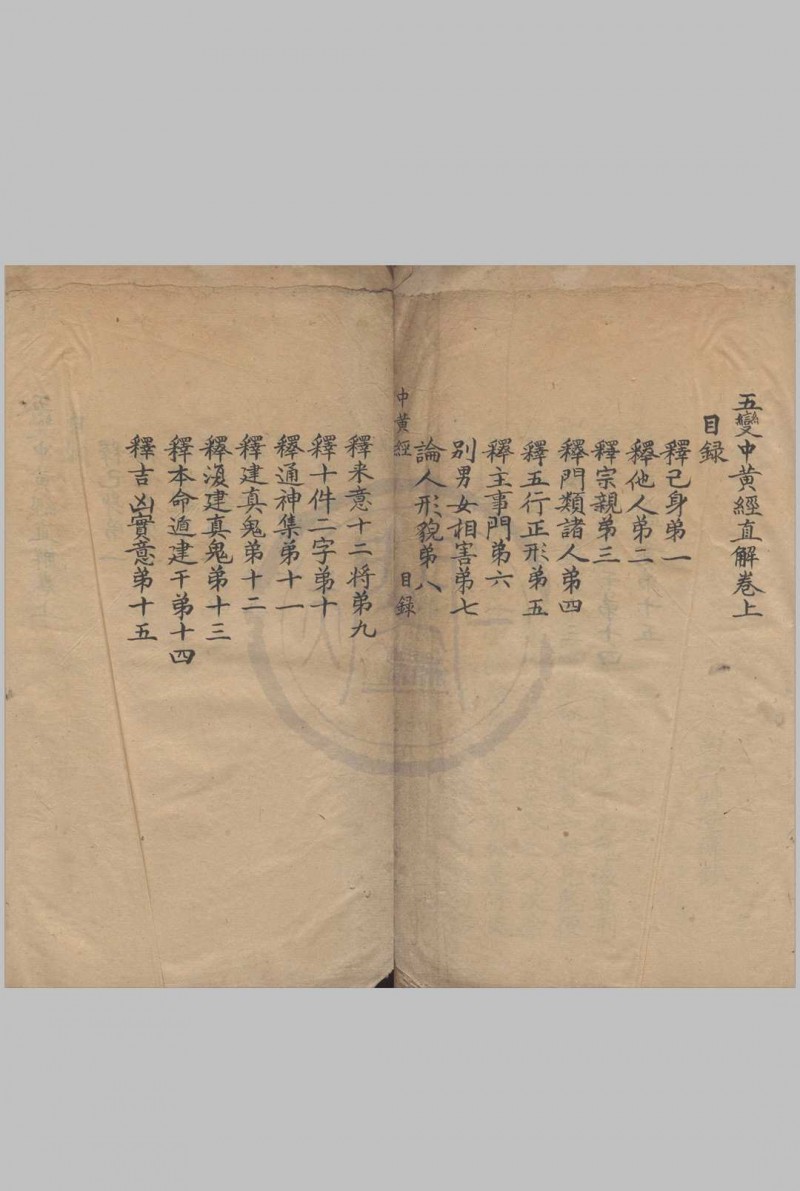 五變中黄經直解卷上
目録
釋己身弟一
釋他人弟二
釋宗親弟三
釋門類諸人弟四
釋五行正形弟五
釋主事門弟六
别男女相害弟七
論人形貌弟八
中黄經 目録
釋来意十二将弟九
釋十件二字弟十
釋通神集弟十一
釋建真鬼弟十二
釋復建真鬼弟十三
釋本命遁建干弟十四
釋吉凶實意弟十五